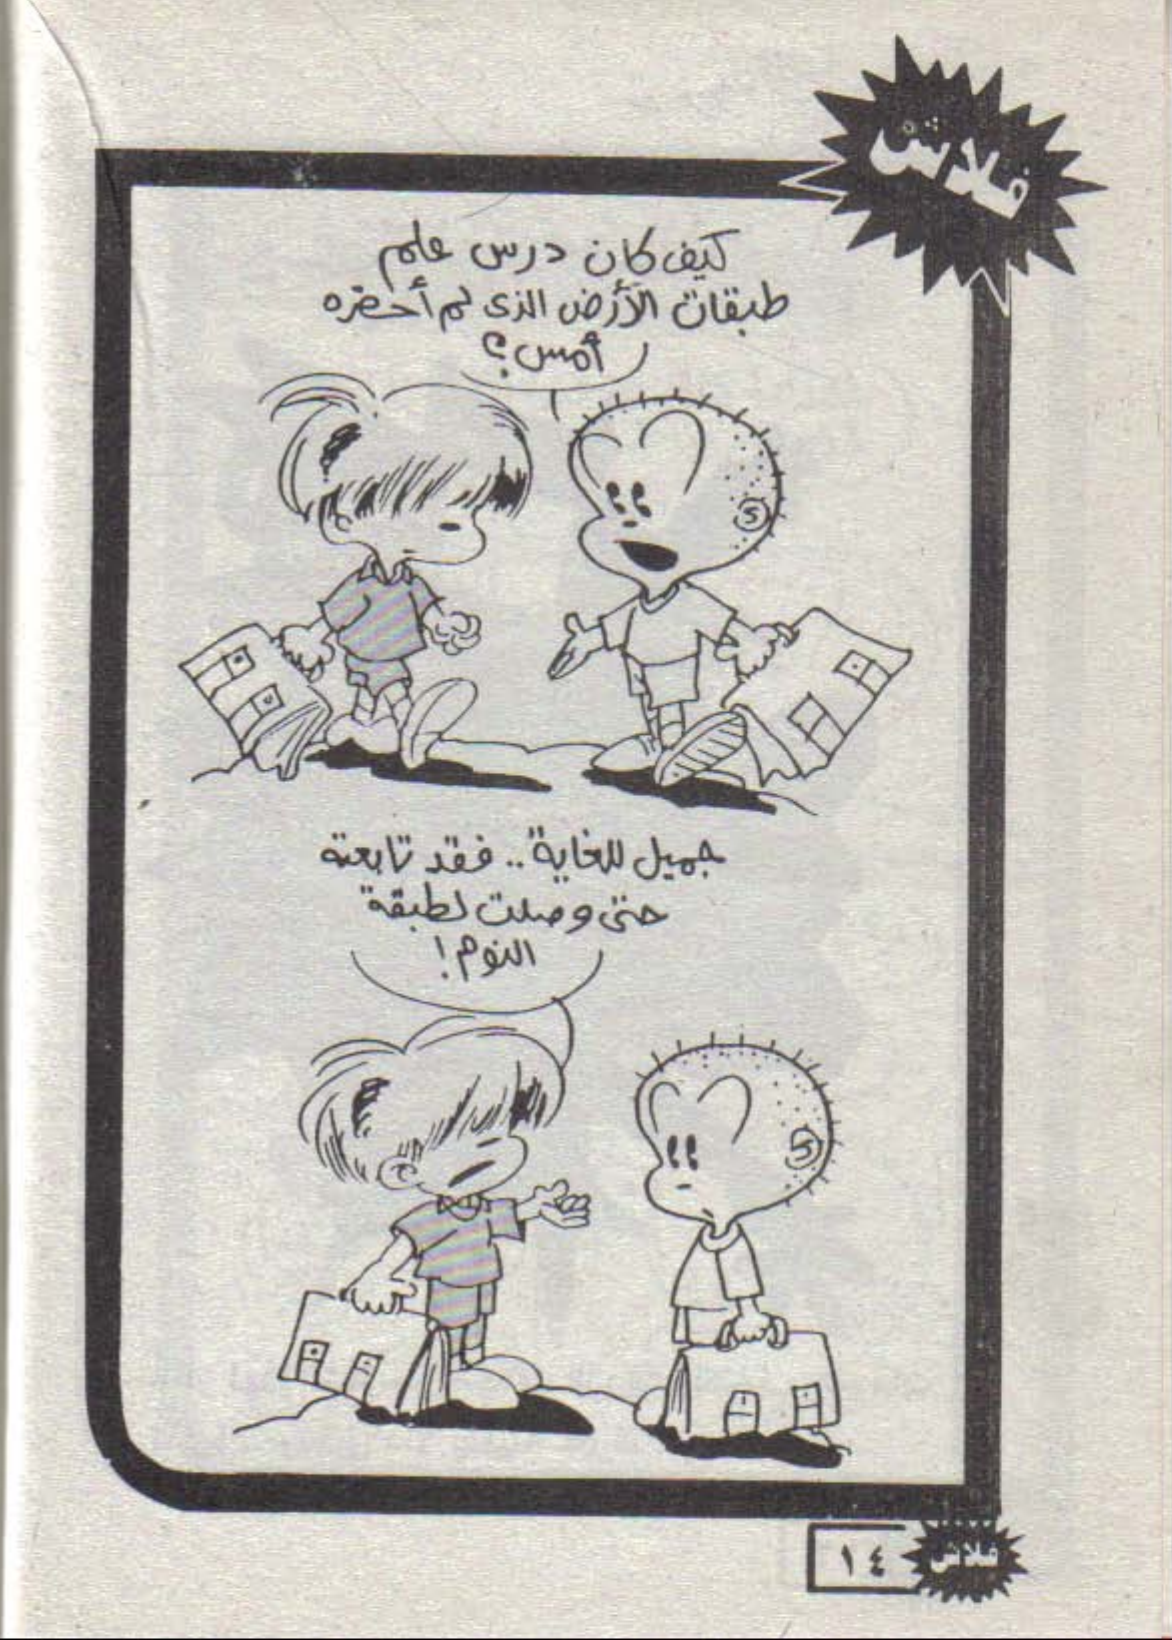 فلاش
كيف كان درس علم
طبقات الأرض الذى لم أحضره
أمس؟
جميل للغاية.. فقد تابعته
حتى وصلت لطبقة
النوم!
١٤
فلاش